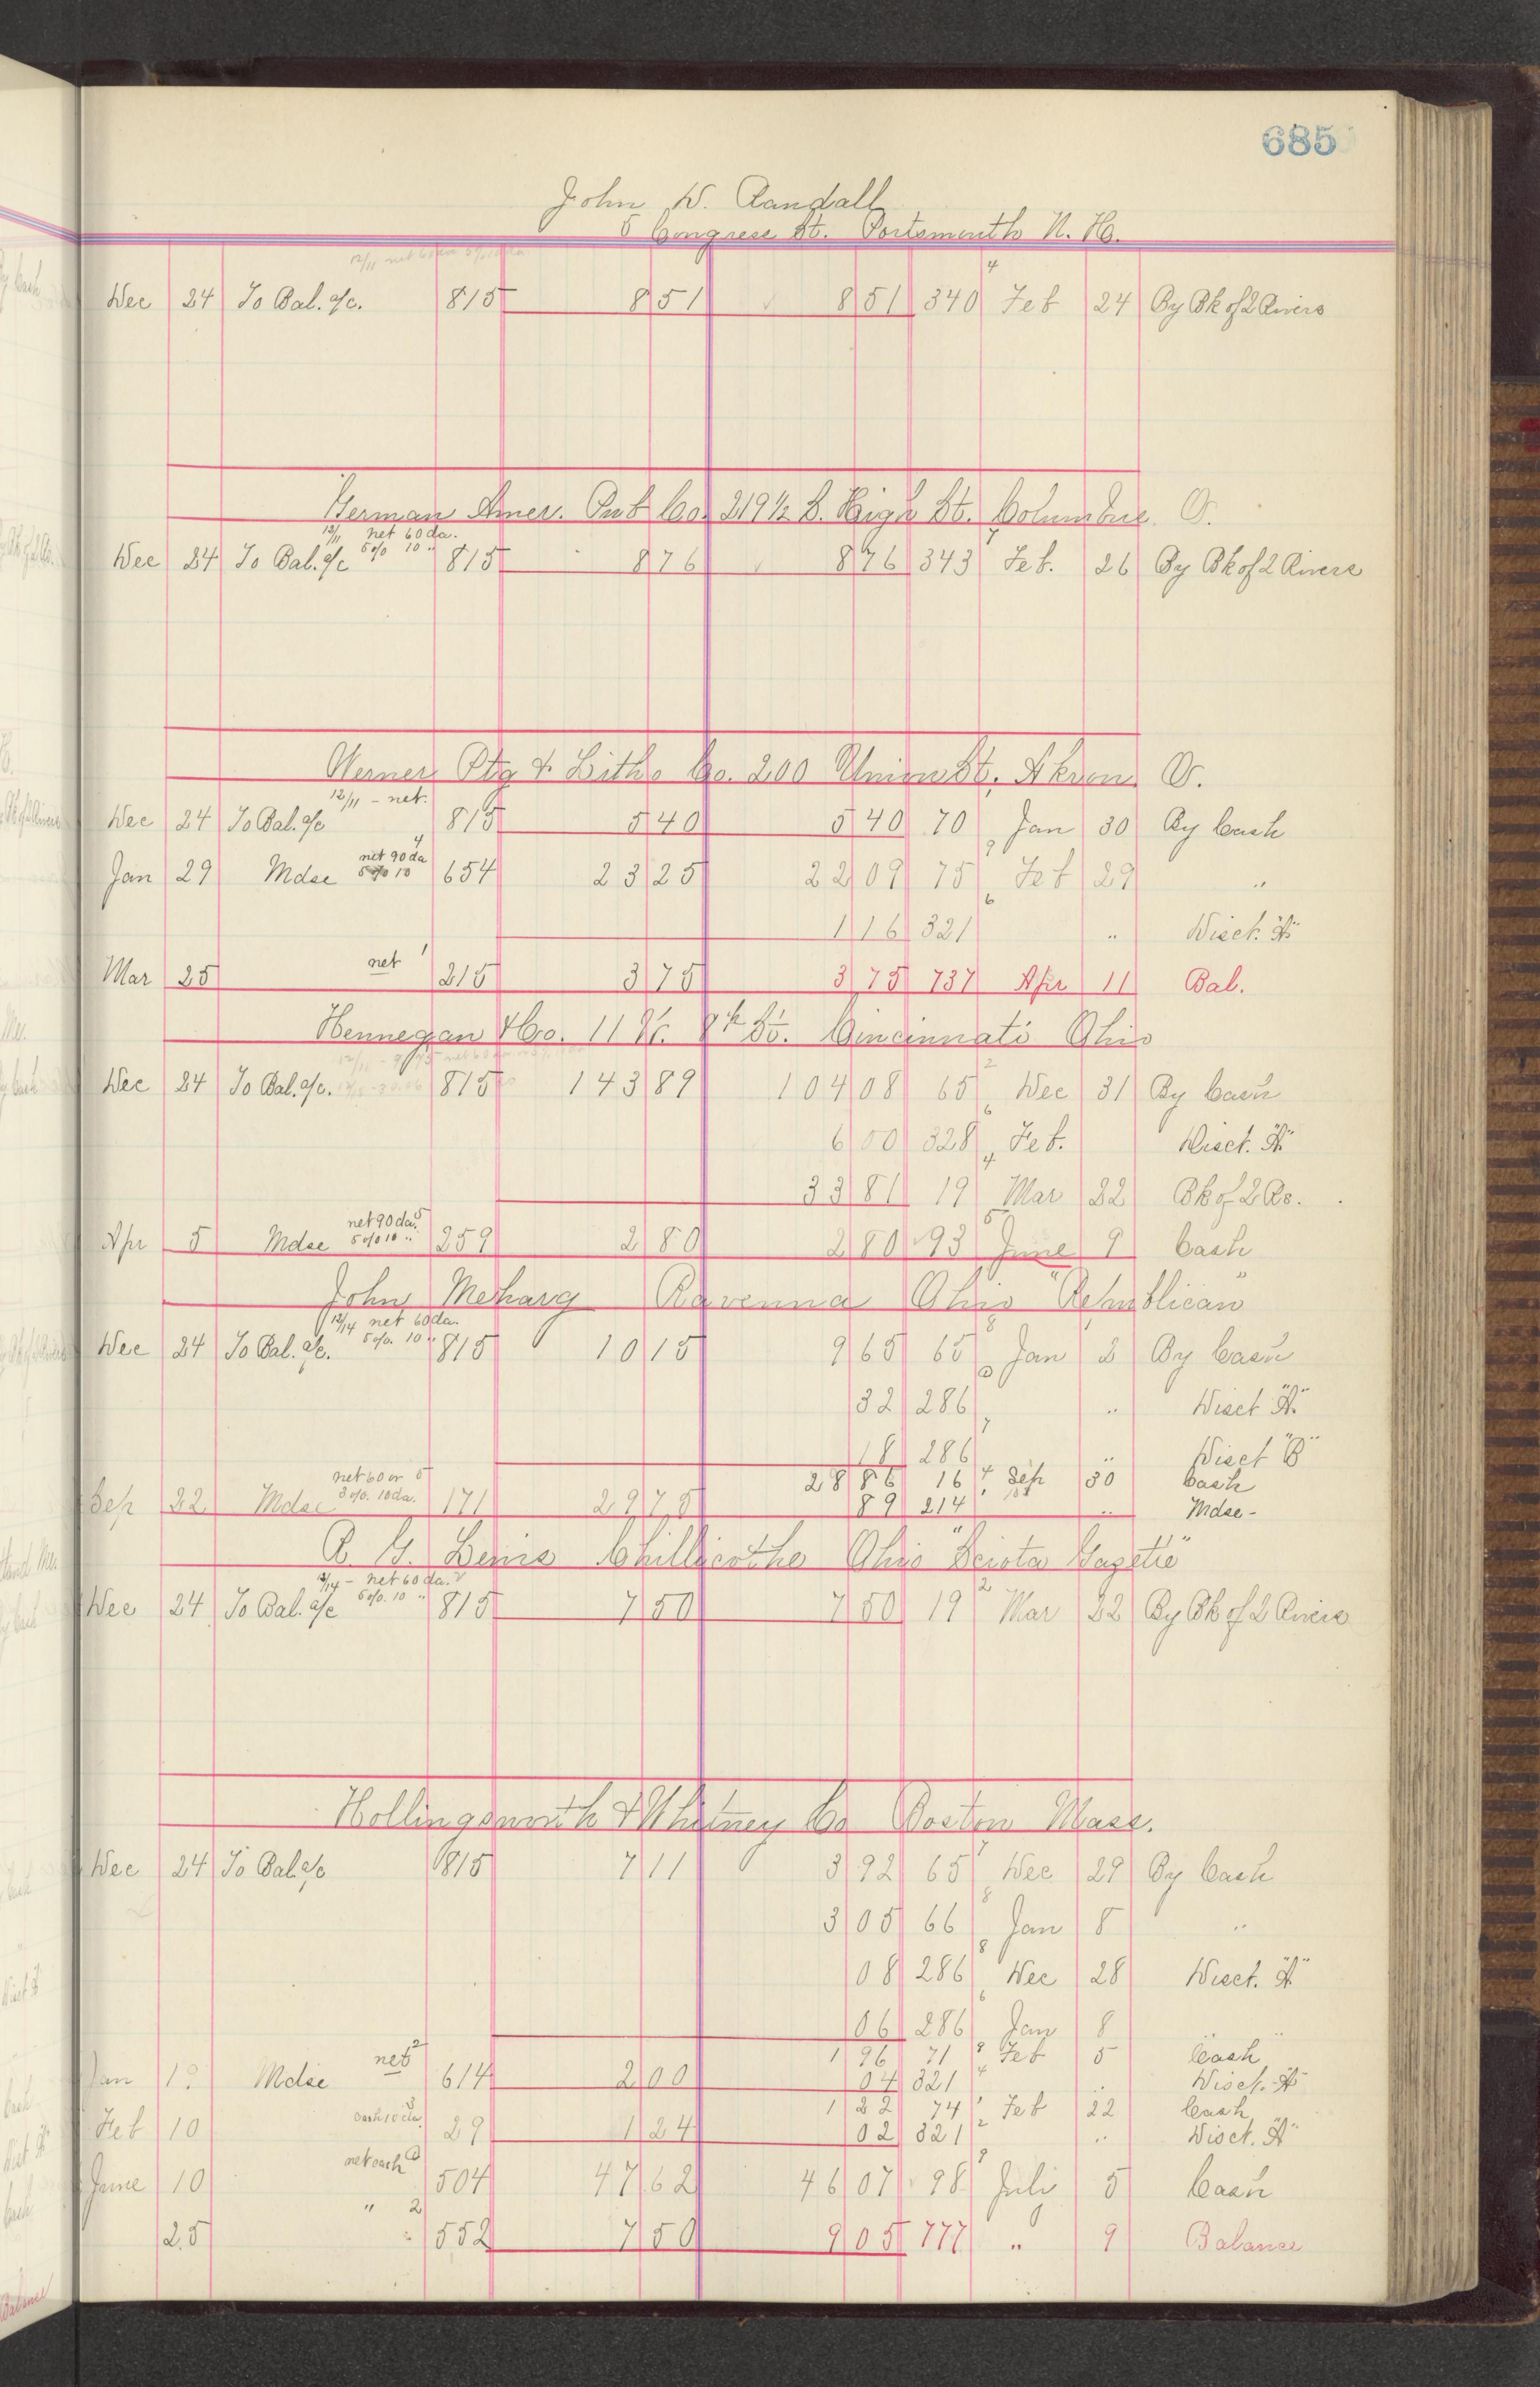 685
John W. Randall
5 Congress St. Portsmouth N. H.
4
Dec 24 To Bal. a/c. 815 8 51 8 51 340 Feb 24 By Bk of 2 Rivers
German Amer. Pub Co. 219 1/2 S. High St. Columbus O.
12/11 net 60 da.
Dec 24 To Bal. a/c 5% 10 " 815 8 76 8 76 343 Feb. 26 By Bk of 2 Rivers
Werner Ptg & Litho Co. 200 Union St. Akron O.
12/11 - net.
Dec 24 To Bal. a/c 815 5 40 5 40 70 Jan 30 By Cash
net 90 da
Jan 29 Mdse 5% 10 654 23 25 22 09 75 Feb 29 "
1 16 321 " Disct. "A"
Mar 25 net 1 215 3 75 3 75 737 Apr 11 Bal.
Hennegan & Co. 11 W. 8th St. Cincinnati Ohio
Dec 24 To Bal. a/c. 815 143 89 104 08 65 Dec 31 By Cash
6 00 328 Feb. Disct. "A"
33 81 19 Mar 22 Bk of 2 Rs.
net 90 da.
Apr 5 Mdse 5% 10 " 259 2 80 2 80 93 June 9 Cash
John Meharg Ravenna Ohio "Republican"
12/14 net 60 da.
Dec 24 To Bal. a/c. 5%. 10 " 815 10 15 9 65 65 Jan 2 By Cash
32 286 " Disct "A"
18 286 " Disct "B"
net 60 or 28 86 16 Sep 30 Cash
Sep 22 Mdse 3%. 10 da. 171 29 75 89 214 " Mdse -
R. G. Lewis Chillicothe Ohio "Sciota Gazette"
- net 60 da.
Dec 24 To Bal. a/c 5%. 10 " 815 7 50 7 50 19 Mar 22 By Bk of 2 Rivers
Hollingsworth & Whitney Co Boston Mass.
Dec 24 To Bal. a/c 815 7 11 3 92 65 Dec 29 By Cash
3 05 66 Jan 8 "
08 286 Dec 28 Disct. "A"
06 286 Jan 8 "
1 96 71 Feb 5 Cash
Jan Mdse net 2 614 2 00 04 321 " Disct. "A"
1 22 74 Feb 22 Cash
Feb 10 cash 10 da. 29 1 24 02 321 " Disct. "A"
June 10 net cash 504 47 62 46 07 98 July 5 Cash
25 " 2 552 7 50 9 05 777 " 9 Balance